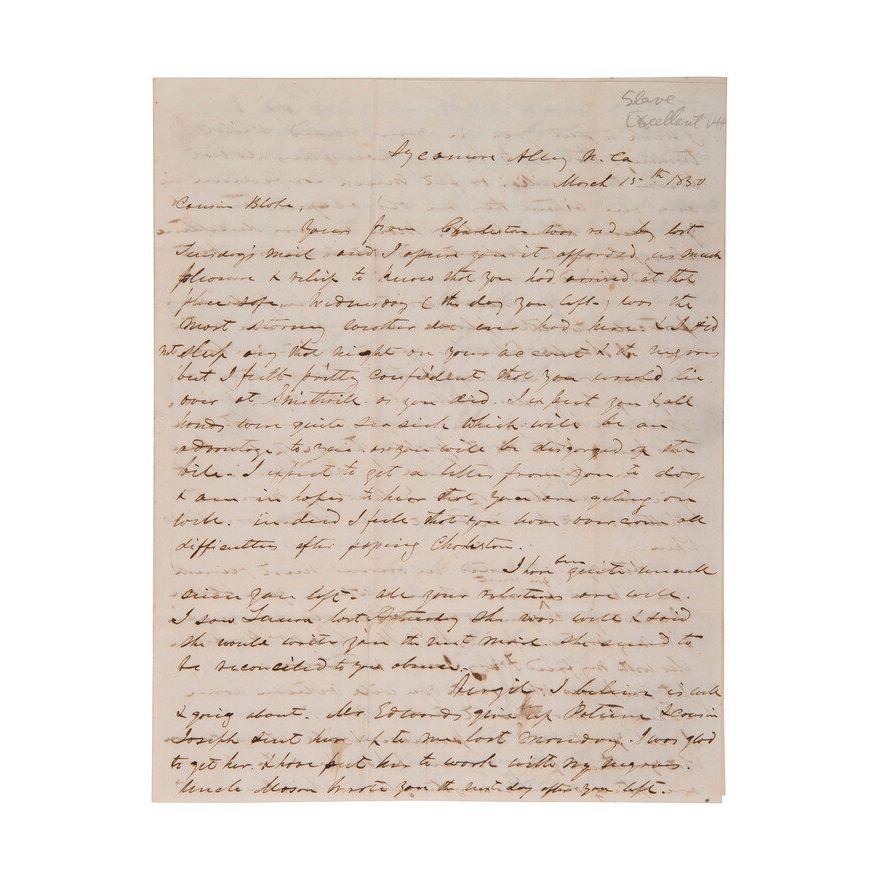 Slave
Excellent
Sycamore Alley N. Ca
March 15th 1850
Cousin Blake,
Yours from Charleston was recd by last
Tuesday's mail and I assure you it afforded us much
pleasure & relief to know that you had arrived at that
place safe. Wednesday (the day you left) was the
most stormy weather we ever had here. & I did
not sleep any that night on your account & the negroes
but I felt pretty confident that you would lie
over at Smithville as you did. I expect you & all
hands were quite sea sick which will be an
advantage to you as you will be disgorged of the
bile. I expect to get a letter from you to day
& am in hopes to hear that you are getting on
well. indeed I feel that you have overcome all
difficulties after passing Charleston.
I have been quite unwell
since you left. all your relations are well.
I saw Laura last Saturday she was well & said
she would write you the next mail. she seemed to
be reconciled to your absence.
Virgil I believe is well
& going about. Mr Edwards give up & cousin
Joseph sent her up to me last Monday. I was glad
to get her & have put her to work with my negroes.
Uncle Mason wrote you the next day after you left.